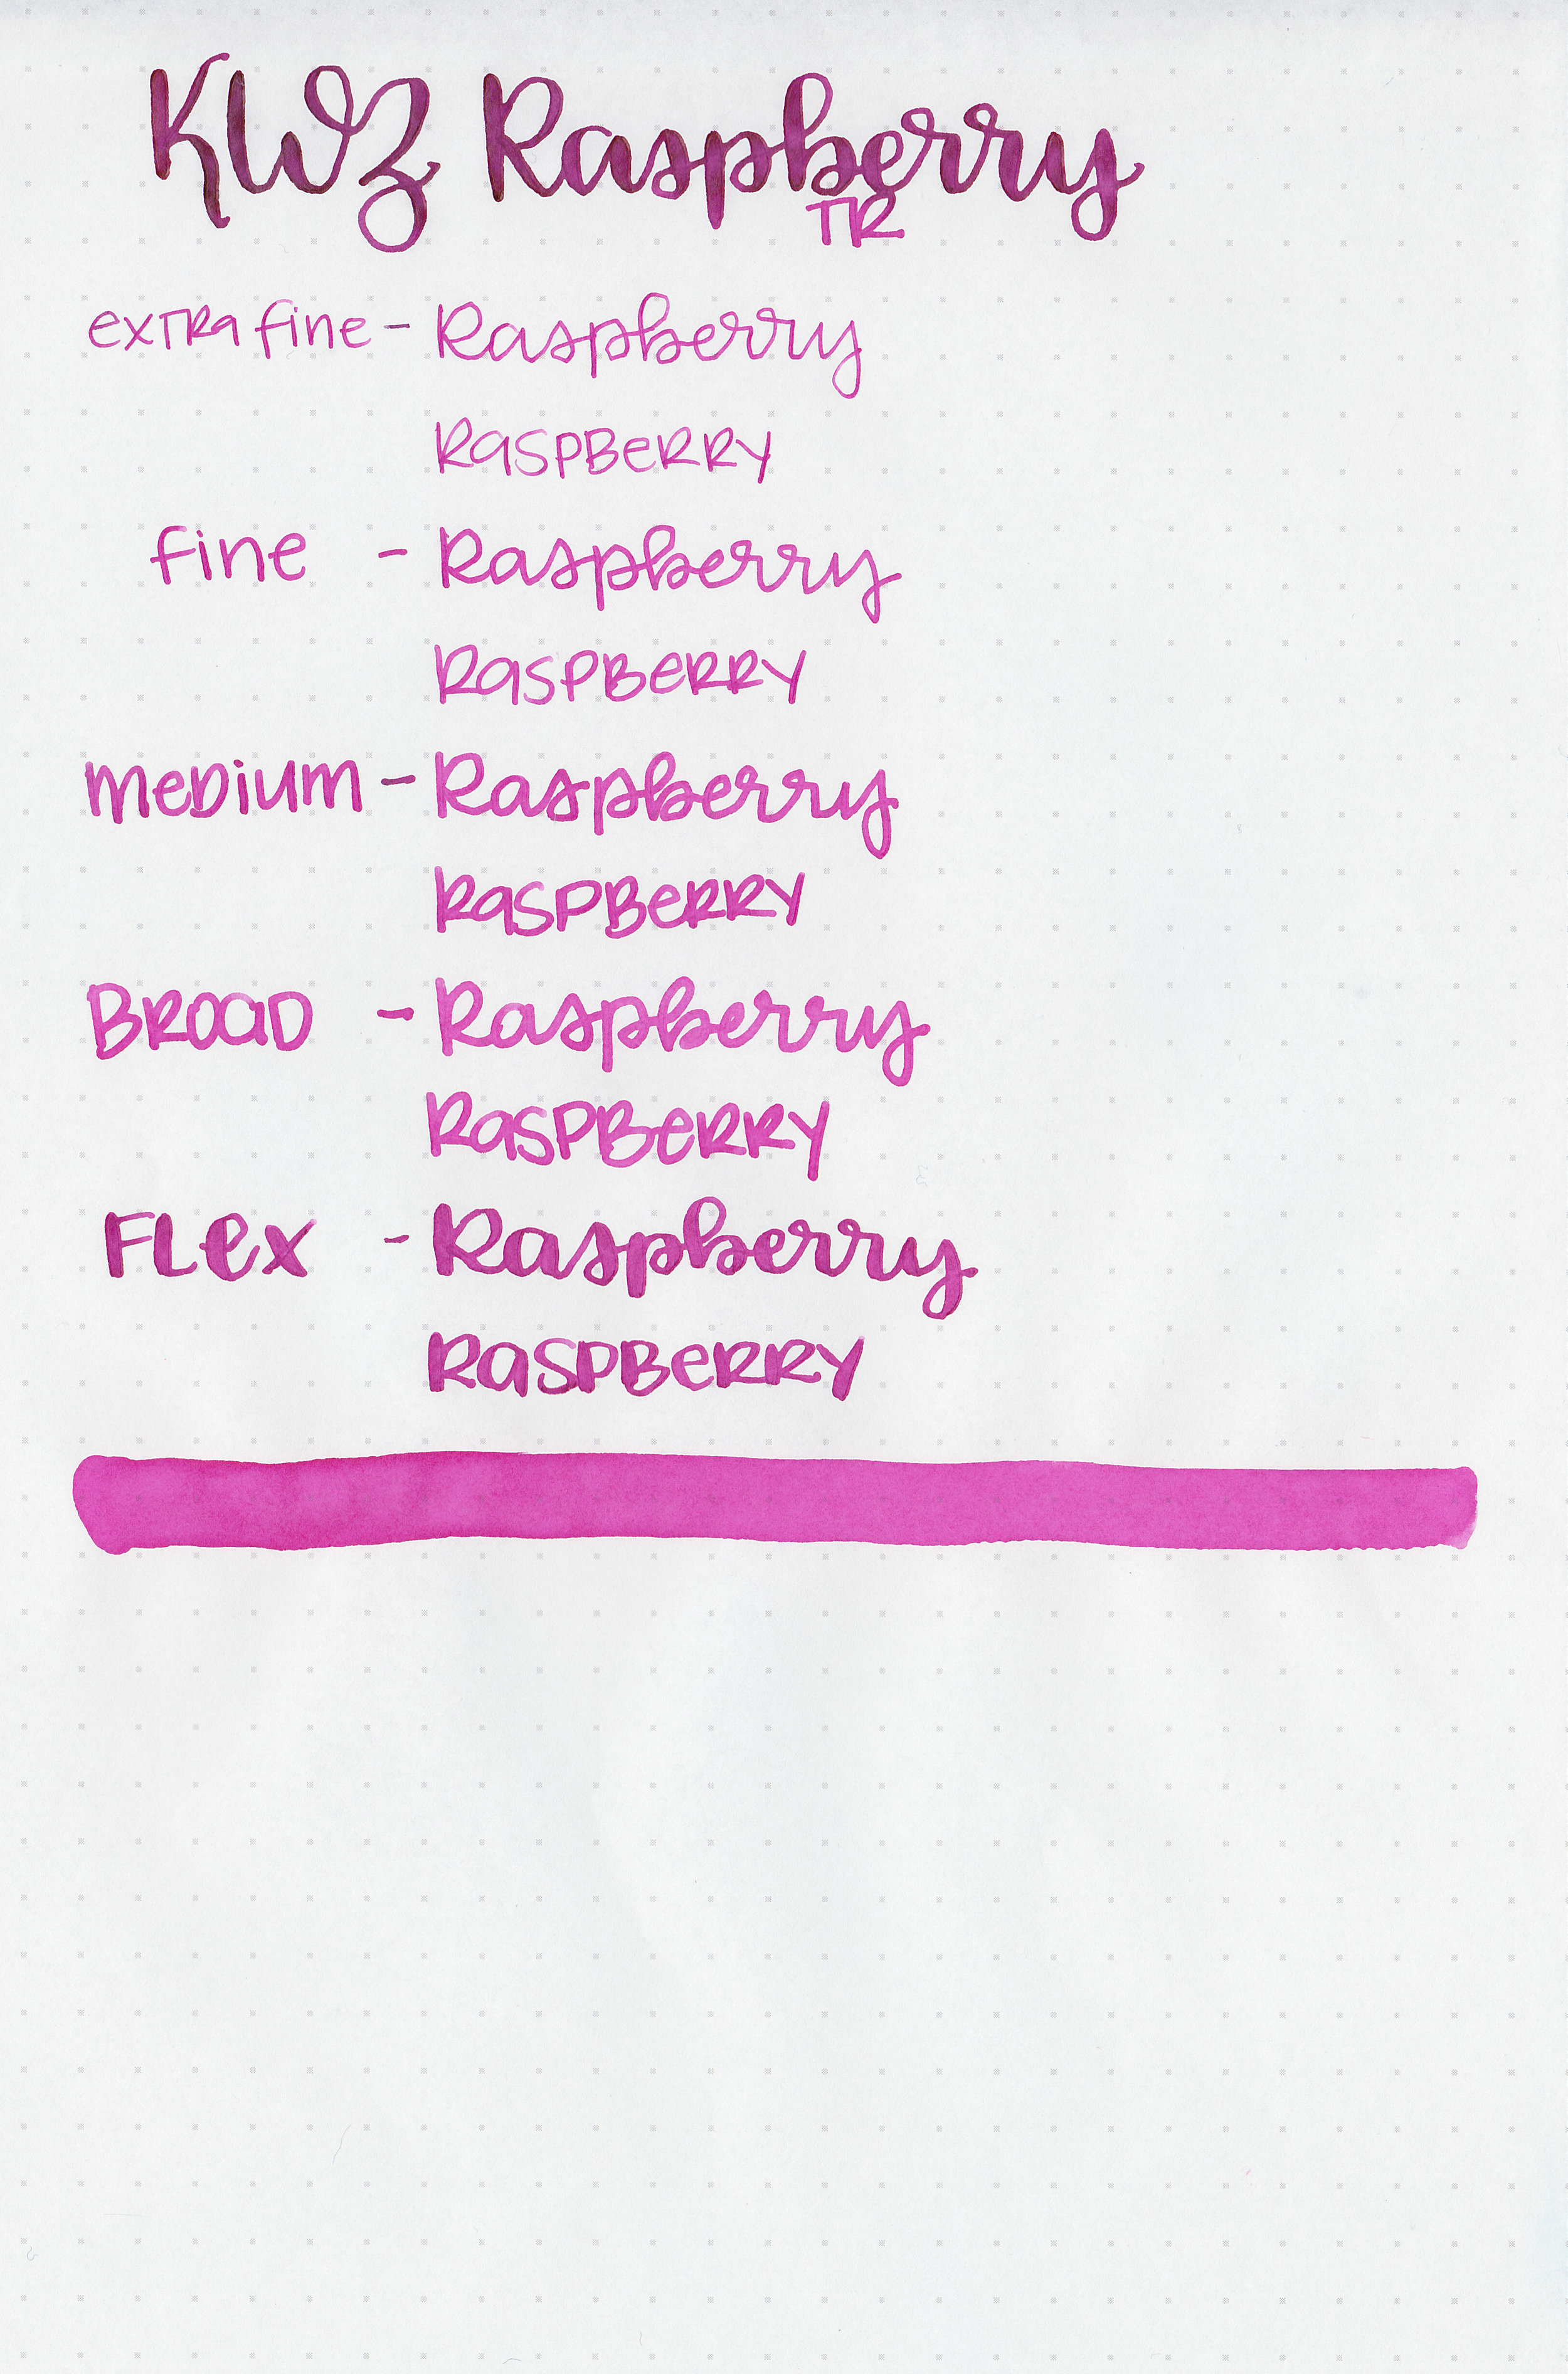 KWZ Raspberry
TR
extra fine - Raspberry
RaspBeRRY
fine - Raspberry
RaspBeRRY
meDium - Raspberry
RaspBeRRY
BROaD - Raspberry
RaspBeRRY
FLex - Raspberry
RaspBeRRY